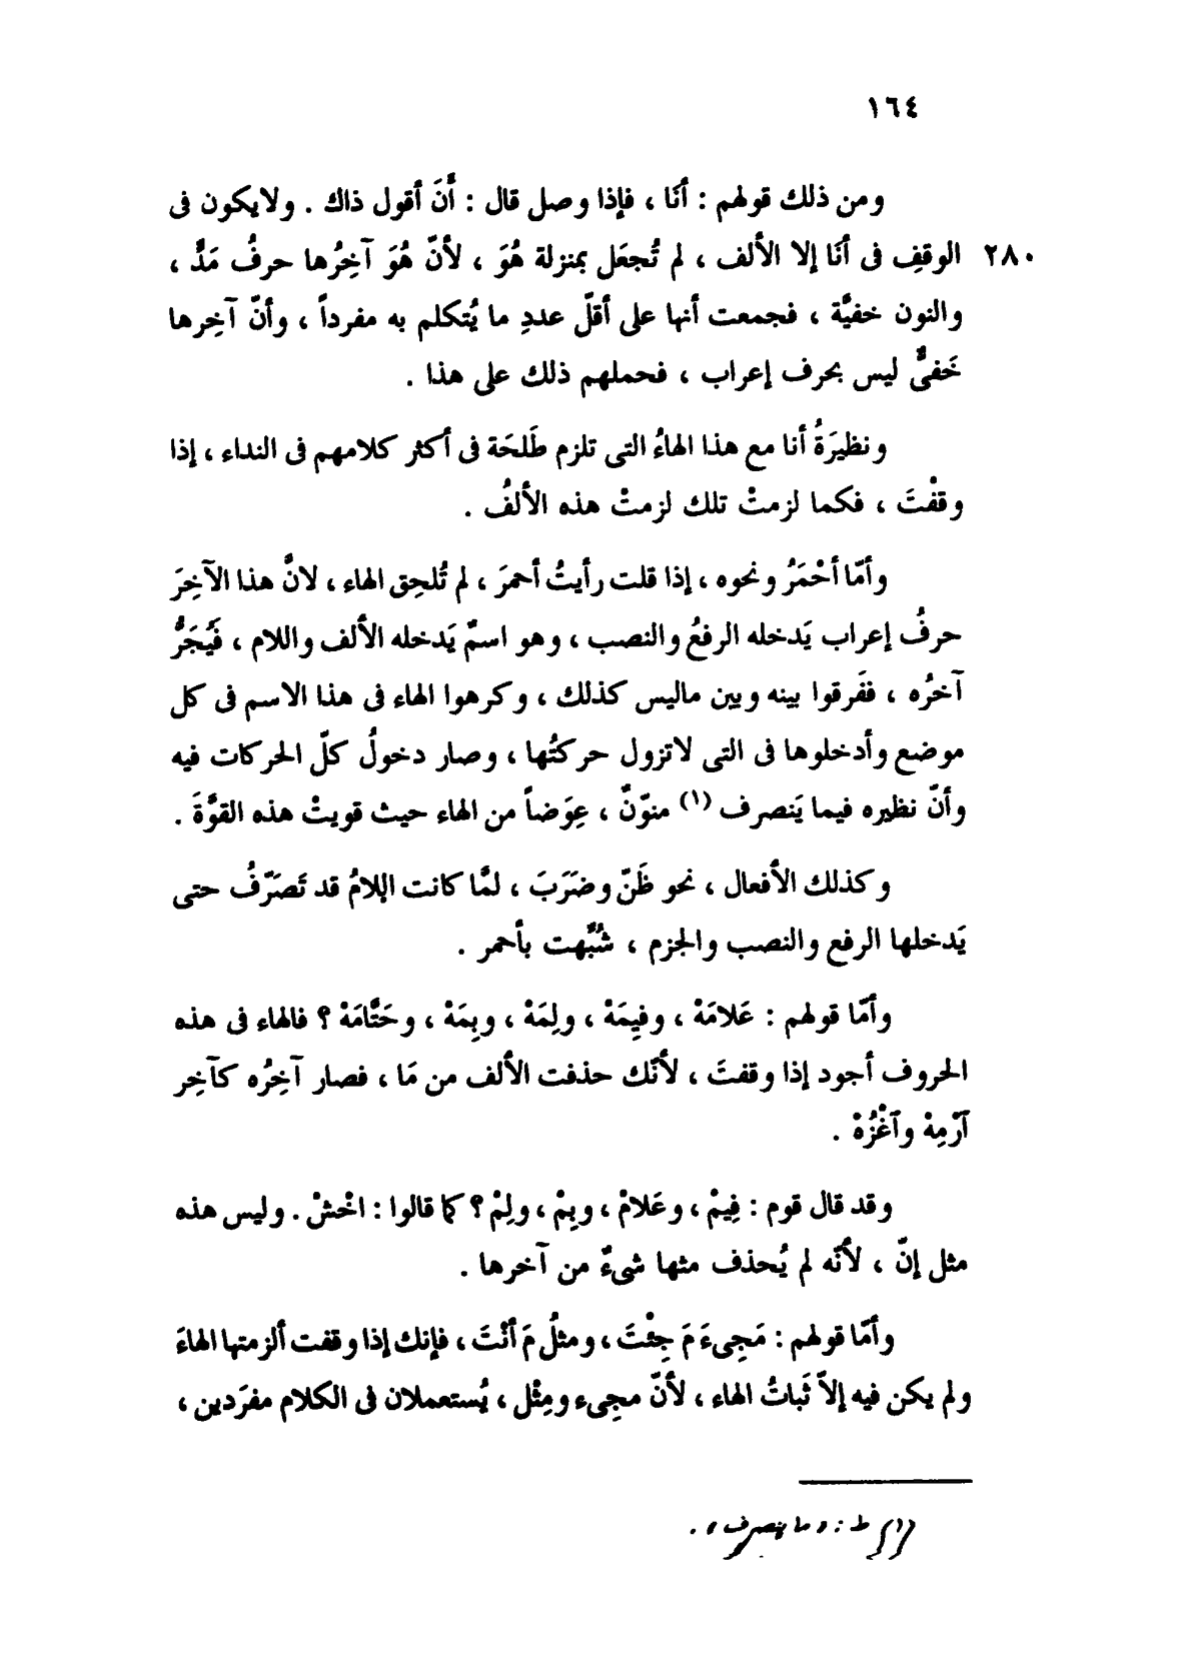 ١٦٤
ومن ذلك قولهم : أنَا ، فإذا وصل قال : أَنَ أقول ذاك . ولايكون فى
٢٨٠ الوقفِ فى أنَا إلا الألف ، لم تُجعَل بمنزلة هُوَ ، لأنّ هُوَ آخِرُها حرفُ مَدٍّ ،
والنون خفيَّة ، فجمعت أنها على أقلّ عددِ ما يُتكلم به مفرداً ، وأنّ آخِرها
خَفىٌّ ليس بحرف إعراب ، فحملهم ذلك على هذا .
ونظيرَةُ أنا مع هذا الهاءُ التى تلزم طَلحَة فى أكثر كلامهم فى النداء ، إذا
وقفْتَ ، فكما لزمتْ تلك لزمتْ هذه الألفُ .
وأمّا أحْمَرُ ونحوه ، إذا قلت رأيتُ أحمرَ ، لم تُلحِق الهاء ، لانَّ هذا الآخِرَ
حرفُ إعراب يَدخله الرفعُ والنصب ، وهو اسمٌ يَدخله الألف واللام ، فيُجَرُّ
آخرُه ، ففَرقوا بينه وبين ماليس كذلك ، وكرهوا الهاء فى هذا الاسم فى كل
موضع وأدخلوها فى التى لاتزول حركتُها ، وصار دخولُ كلّ الحركات فيه
وأنّ نظيره فيما يَنصرف (١) منوّنٌ ، عِوَضاً من الهاء حيث قويتْ هذه القوَّةَ .
وكذلك الأفعال ، نحو ظَنّ وضَرَبَ ، لمَّا كانت اللامُ قد تَصَرّفُ حتى
يَدخلها الرفع والنصب والجزم ، شُبِّهت بأحمر .
وأمّا قولهم : عَلامَهْ ، وفيِمَهْ ، ولِمَهْ ، وبِمَهْ ، وحَتَّامَهْ ؟ فالهاء فى هذه
الحروف أجود إذا وقفتَ ، لأنّك حذفت الألف من مَا ، فصار آخِرُه كآخِر
آرْمِهْ وآغْزُهْ .
وقد قال قوم : فِيمْ ، وعَلامْ ، وبِمْ ، ولِمْ ؟ كما قالوا : اخْشْ . وليس هذه
مثل إنّ ، لأنّه لم يُحذف منها شىءٌ من آخرها .
وأمّا قولهم : مَجِىءَ مَ جِئْتَ ، ومثلُ مَ أنْتَ ، فإنك إذا وقفت ألزمتها الهاءَ
ولم يكن فيه إلاّ ثَباتُ الهاء ، لأنّ مجِىء ومِثْل ، يُستعملان فى الكلام مفرَدين ،
(١) ط : « ما ينصرف » .